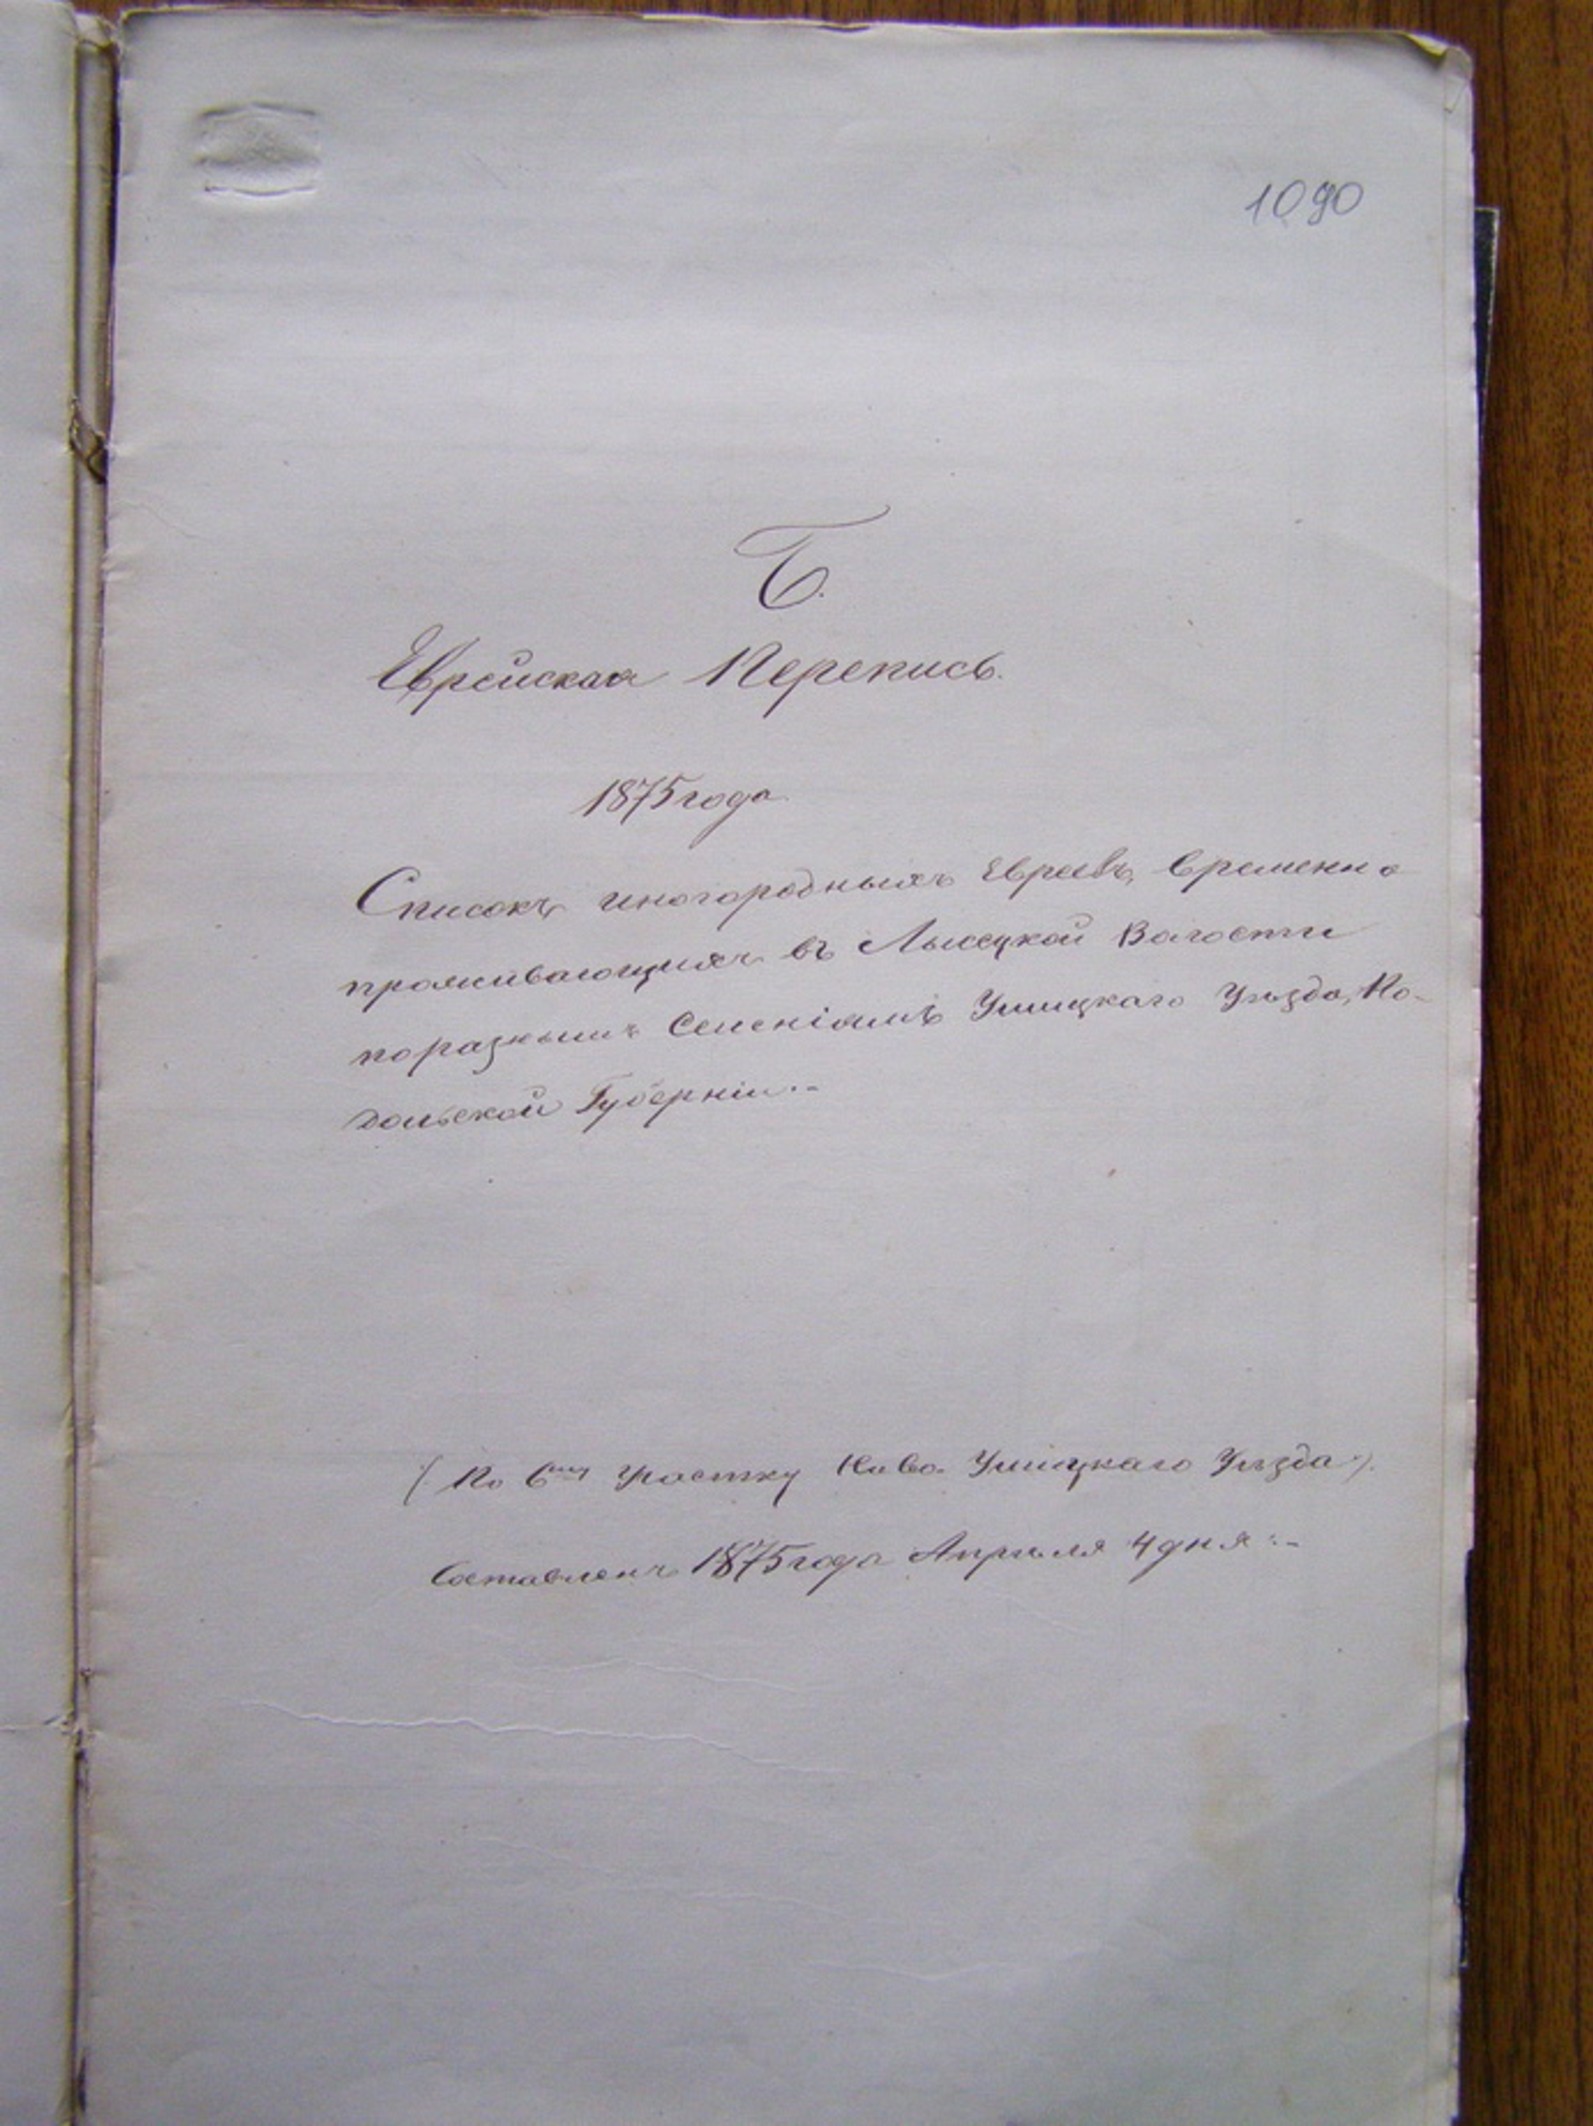 1090
Б.
Еврейская Перепись.
1875 года
Списокъ иногородныхъ Евреевъ, временно
проживающихъ въ Лысецкой Волости
по разнымъ Селеніямъ Ушицкаго Уѣзда, По-
дольской Губерніи.
(По 6му Участку Ново-Ушицкаго Уѣзда).
Составленъ 1875 года Апрѣля 4 дня